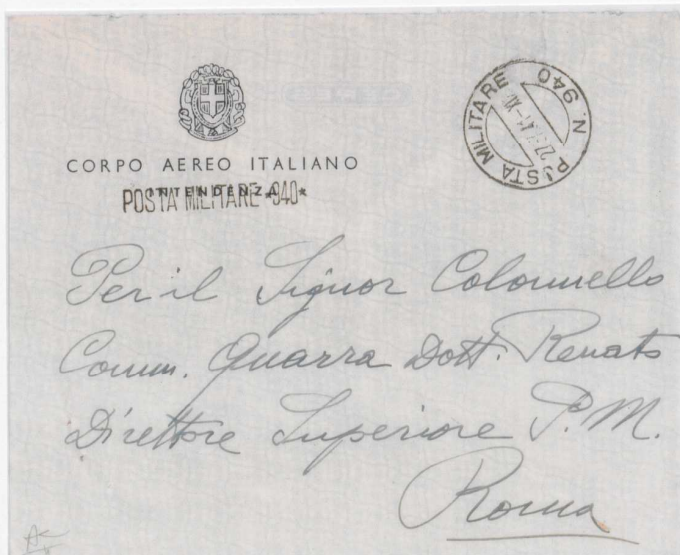 CORPO AEREO ITALIANO
INTENDENZA
POSTA MILITARE *940*
POSTA MILITARE N. 940
Per il Signor Colonnello
Comm. Quarra Dott. Renato
Direttore Superiore P. M.
Roma